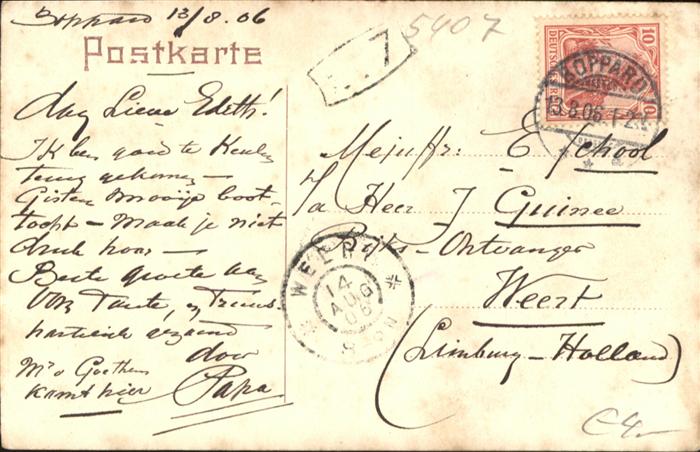 Boppard 13/8.06
Postkarte
dag Lieve Edith!
Ik ben goed te Keulen
terug gekomen -
Gisteren mooije boot-
tocht - Maak je niet
druk hoor -
Beste groete aan
Oom Tante, en Truus
hartelijk gezoend
door
Papa
komt hier
5407
10 DEUTSCHES REICH 10
BOPPARD
13.8.06.
Mejuffr: E School
p/a Heer J Guinee
Rijks-Ontvanger
Weert
(Limburg-Holland)
WEERT
14
AUG
06